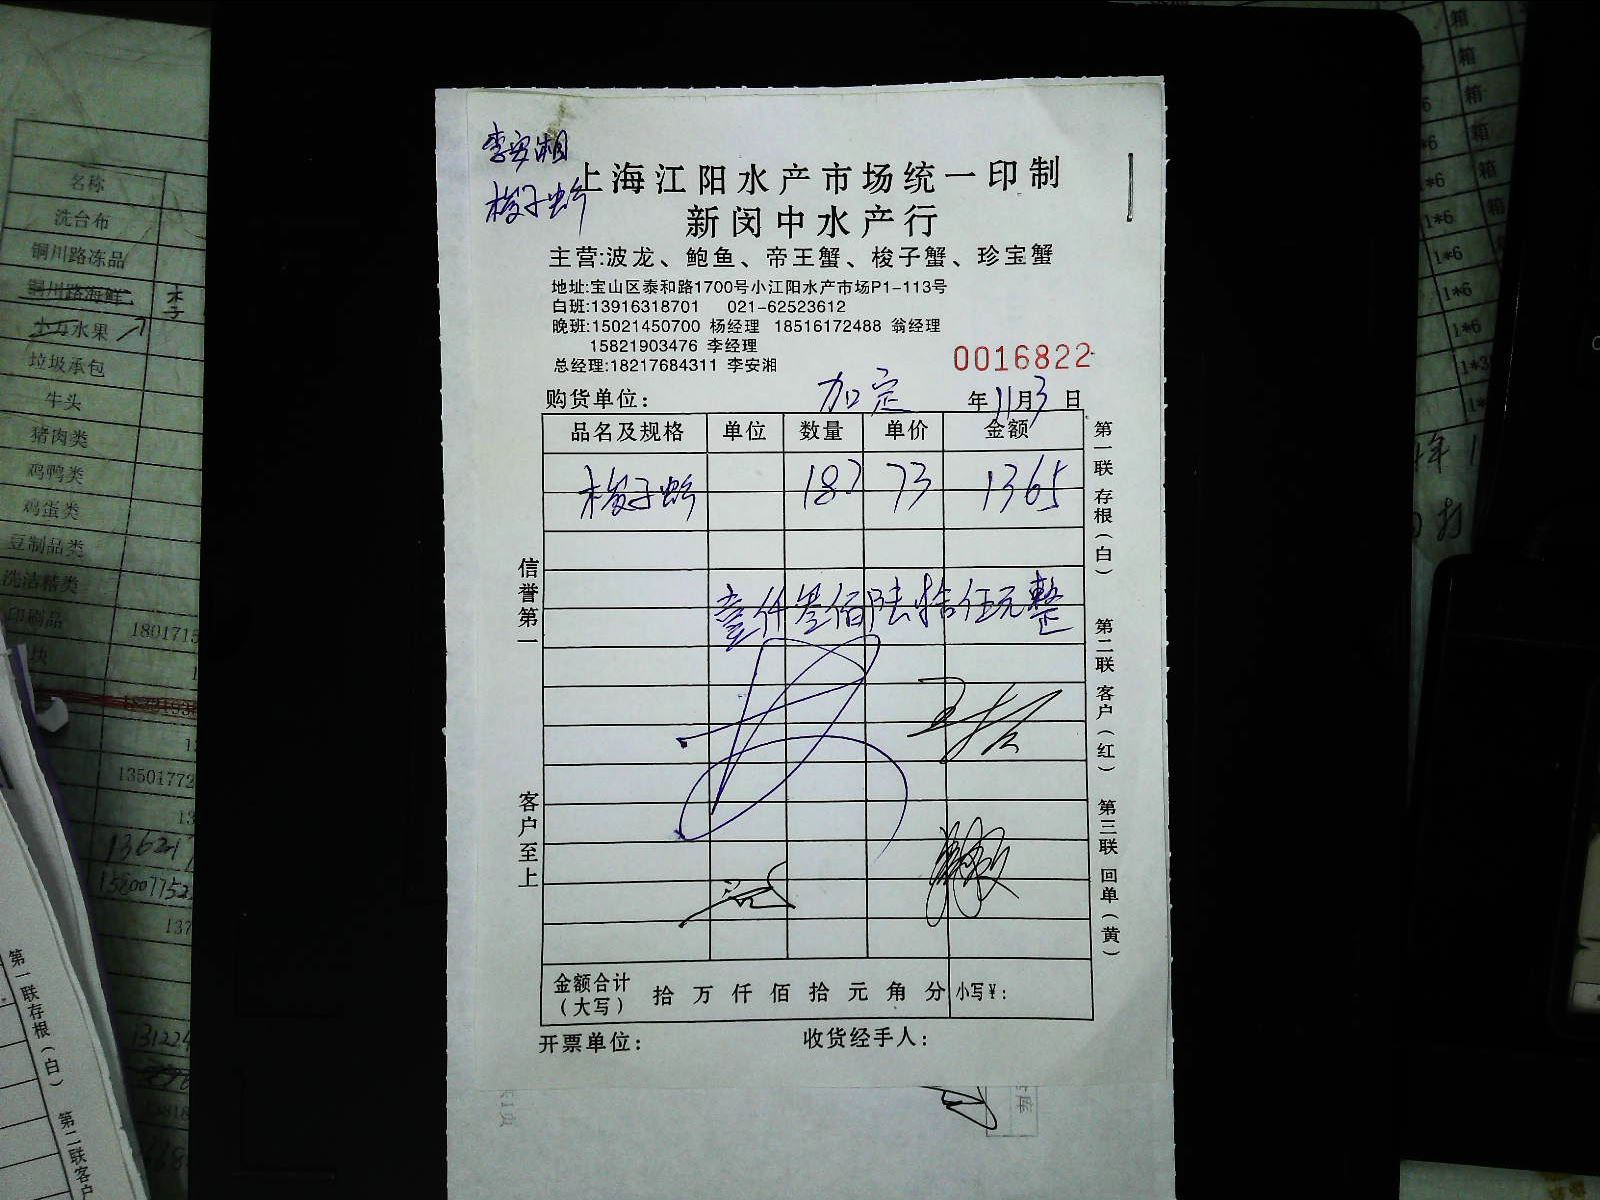 李安湘
梭子蟹
上海江阳水产市场统一印制
新闵中水产行
主营:波龙、鲍鱼、帝王蟹、梭子蟹、珍宝蟹
地址:宝山区泰和路1700号小江阳水产市场P1-113号
白班:13916318701 021-62523612
晚班:15021450700 杨经理 18516172488 翁经理
15821903476 李经理
总经理:18217684311 李安湘
0016822
购货单位: 加定 年11月3日
品名及规格 单位 数量 单价 金额
梭子蟹 187 73 1365
壹仟叁佰陆拾伍元整
金额合计(大写) 拾 万 仟 佰 拾 元 角 分 小写¥:
开票单位: 收货经手人:
信誉第一 客户至上
第一联 存根(白) 第二联 客户(红) 第三联 回单(黄)
名称
洗台布
铜川路冻品
铜川路海鲜
水果
垃圾承包
牛头
猪肉类
鸡鸭类
鸡蛋类
豆制品类
洗洁精类
印刷品
第一联存根(白) 第二联客户